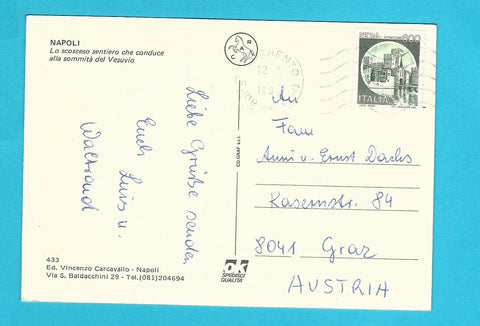 NAPOLI
Lo scosceso sentiero che conduce
alla sommità del Vesuvio
Liebe Grüße senden
Euch Luis u.
Waltraud
433
Ed. Vincenzo Carcavallo - Napoli
Via S. Baldacchini 29 - Tel.(081)204694
SPEDISCI
QUALITA'
600
ITALIA
An
Fam
Anni u. Ernst Dachs
Kasernstr. 84
8041 Graz
AUSTRIA